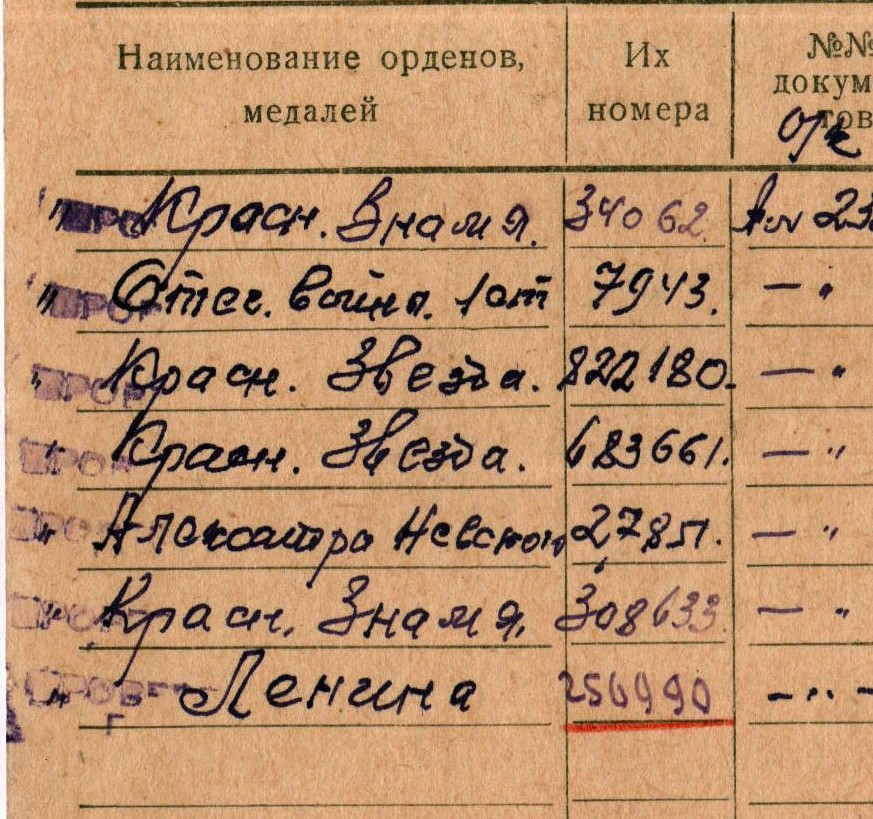 Наименование орденов, медалей Их номера №№ докум
О/к
" Красн. Знамя. 34062. А № 23
" Отеч. война. 1 ст 7943. — "
" Красн. Звезда. 822180. — "
" Красн. Звезда. 683661. — "
" Александра Невского 27851. — "
" Красн. Знамя. 308633. — "
" Ленина 256990 — " —